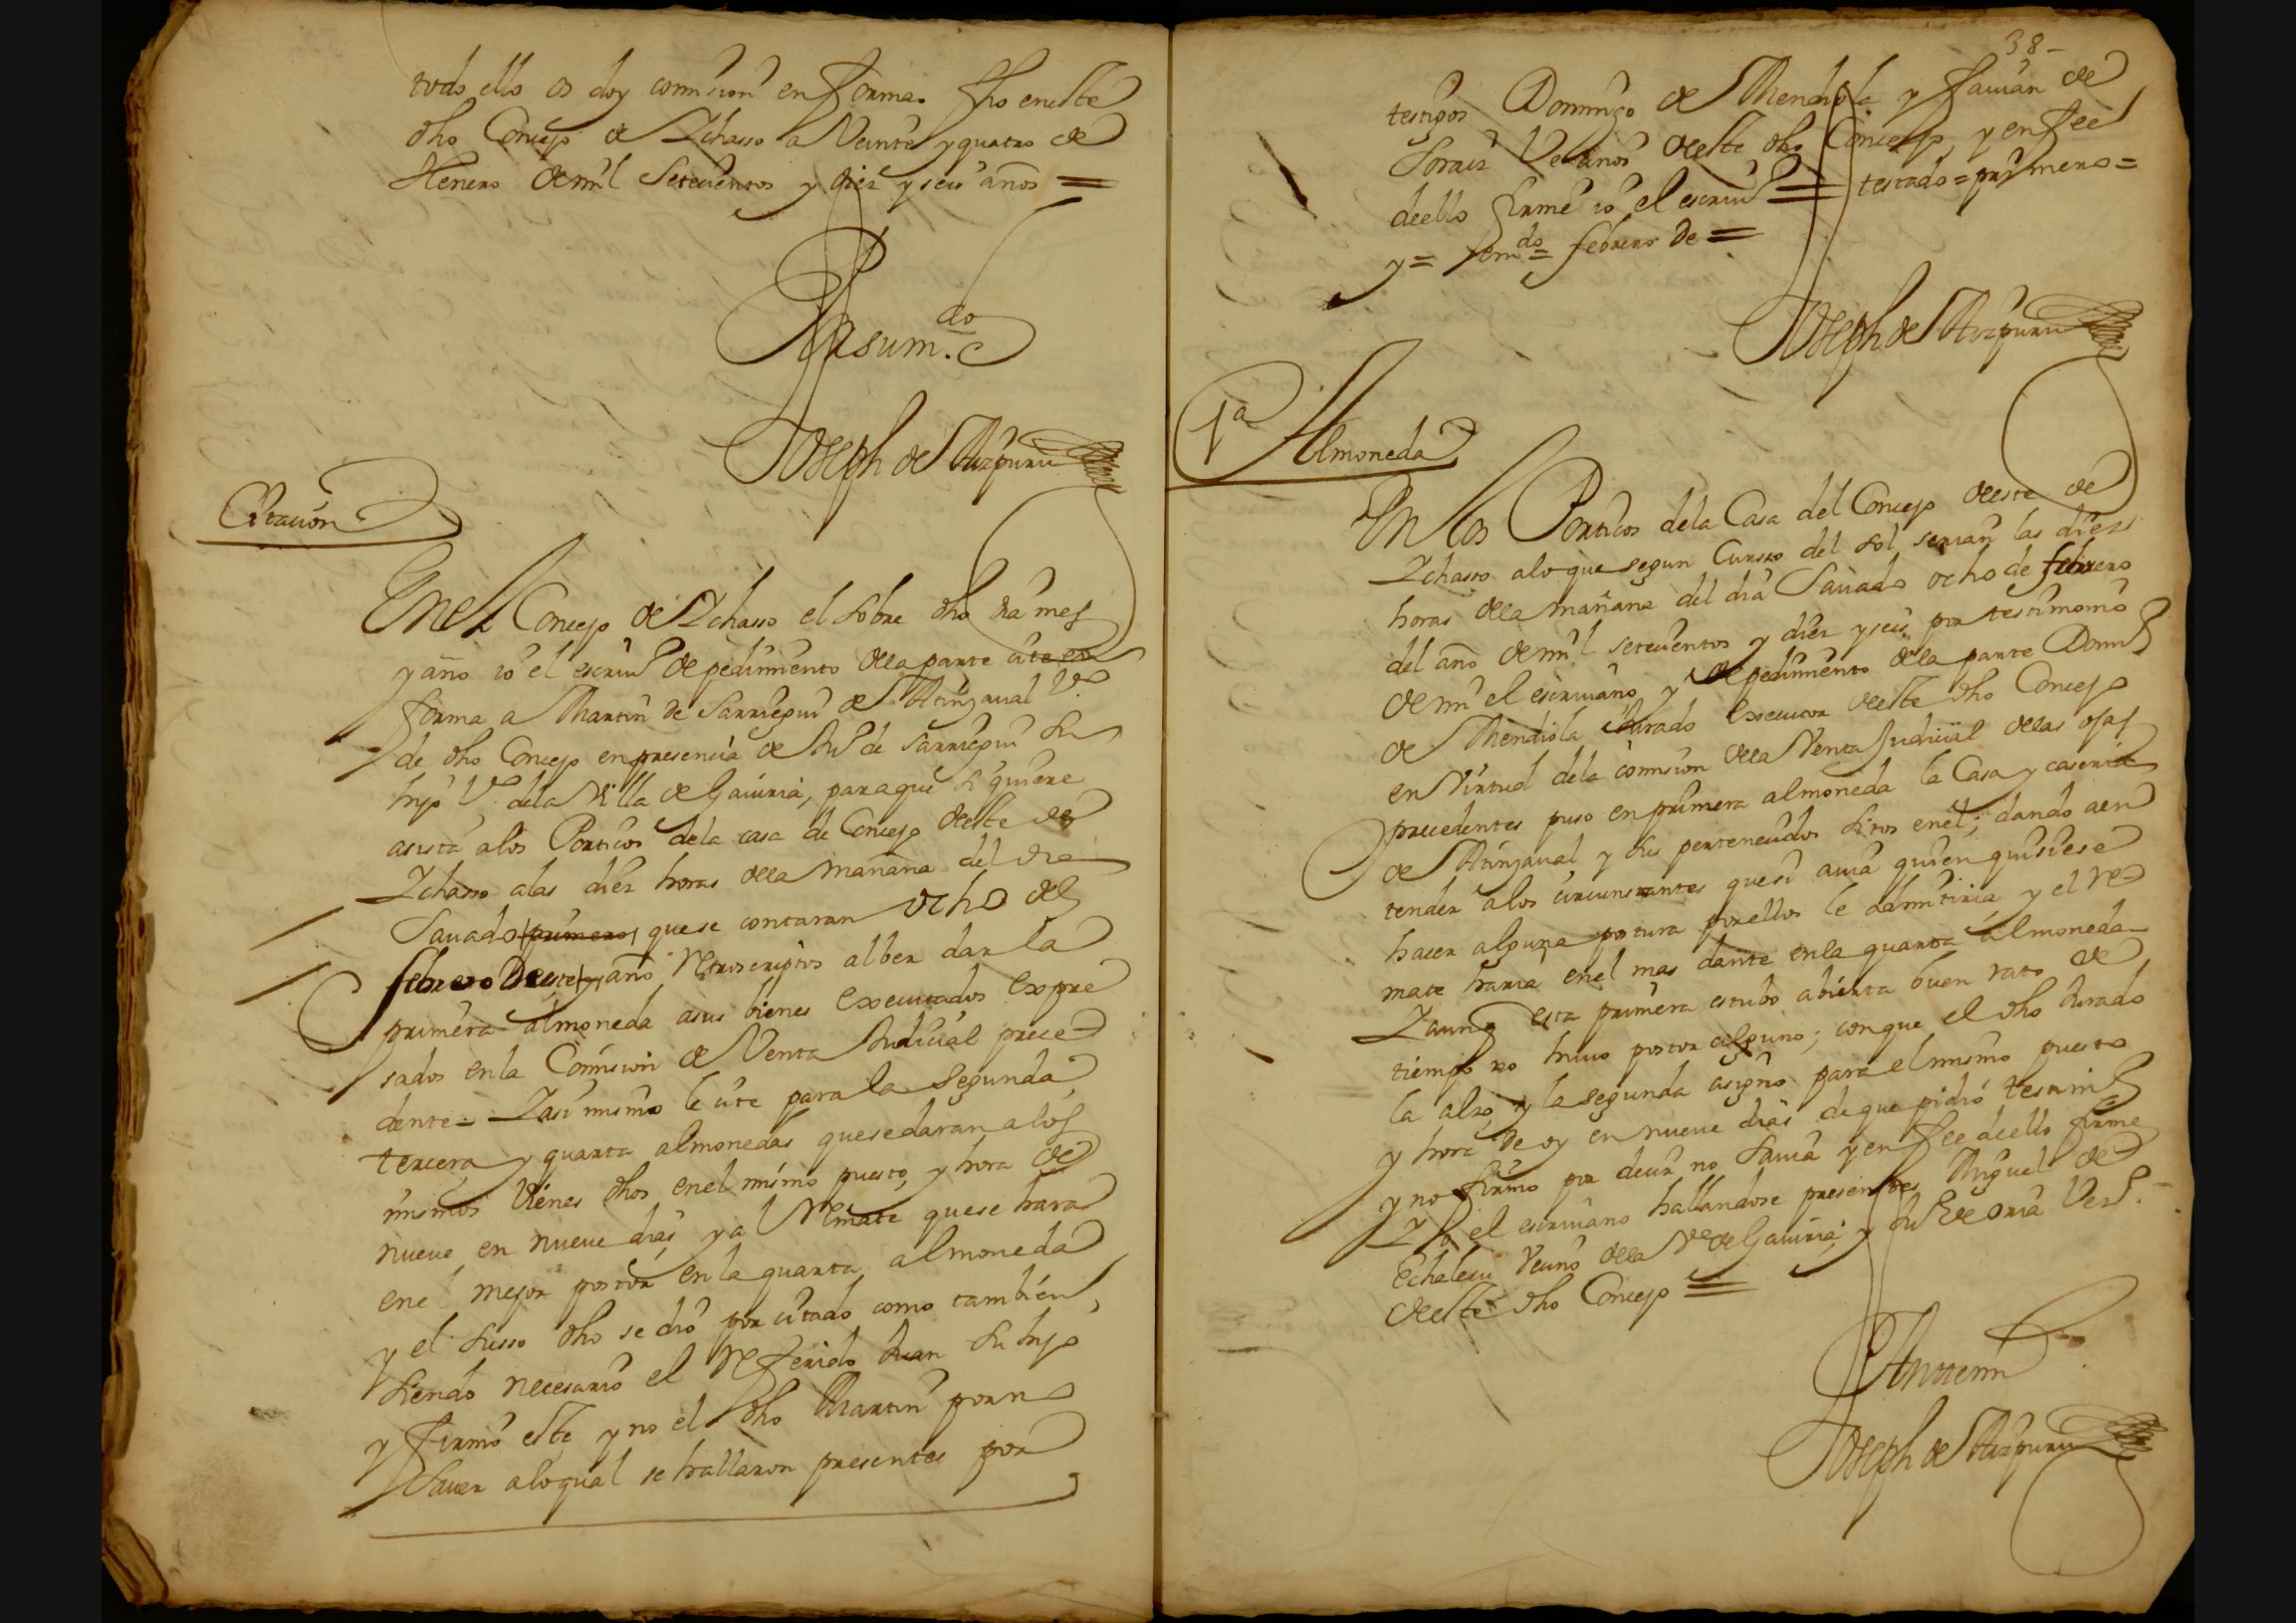 todo ello os doy comision en forma. fho eneste
dho Concejo de Ichasso a Veinte y quatro de
Henero de mil Setecientos y diez y seis años =
Pasum.do
Joseph de Aizpuru
Citacion
En el Concejo de Ichasso el sobre dho dia mes
y año io el escriuo de pedimiento de la parte cite en
forma a Martin de Sarriegui de Atinjaual Vo
de dho Concejo en presencia de Juo de Sarriegui su
hijo Vo de la Villa de Gauiria, para que si quiere
asista alos Porticos de la casa de Concejo deeste de
Ichasso alas diez horas de la mañana del dia
Sauado primero que se contaran ocho de
febrero de este y año retroscriptos al ber dar la
primera almoneda asus bienes executados expre
sados en la Comision de Venta Judicial prece
dente = Iasimismo le cite para la segunda
tercera y quarta almonedas que se daran alos
mismos bienes dhos en el mismo puesto, y hora de
nueve en nueve dias, y al Remate que se hara
en el mejor postor en la quarta almoneda
y el susso dho se dio por citado como tambien,
siendo necesario el referido Juan su hijo
y firmo este y no el dho Martin por no
sauer alo qual se hallaron presentes por
38-
testigos Domingo de Mendiola y fauian de
Soraiz Vecinos deeste dho Concejo, y en fee
deello firme io el escriuo = testado = primero =
y = emdo = febrero de =
Joseph de Aizpuru
1a Almoneda
En los Porticos dela Casa del Concejo deeste de
Ichasso alo que segun Cursso del sol serian las diez
horas de la mañana del dia Sauado ocho de febrero
del año de mil setecientos y diez y seis por testimonio
de mi el escriuano, y de pedimiento de la parte Domo
de Mendiola Jurado executor deeste dho Concejo
en Virtud dela comision de la Venta Judicial de las ojas
precedentes puso en primera almoneda la Casa y caseria
de Atinjaual y sus pertenecidos sitos en el; dando a en
tender alos circunstantes que si auia quien quisiese
hacer alguna postura por ellos le admitiria, y el re
mate haria en el mas dante en la quarta almoneda
I aunq esta primera estubo abierta buen rato de
tiempo no huuo postor alguno; con que el dho Jurado
la alzo, y la segunda asigno para el mismo puesto
y hora de oy en nueue dias de que pidio testimo
y no firmo por decir no sauia y en fee deello firme
Io el escriuano hallandose presentes Miguel de
Echalecu Vecino de la Va de Gauiria, y Juo de Oria Vezo.
deeste dho Concejo =
Antemi
Joseph de Aizpuru